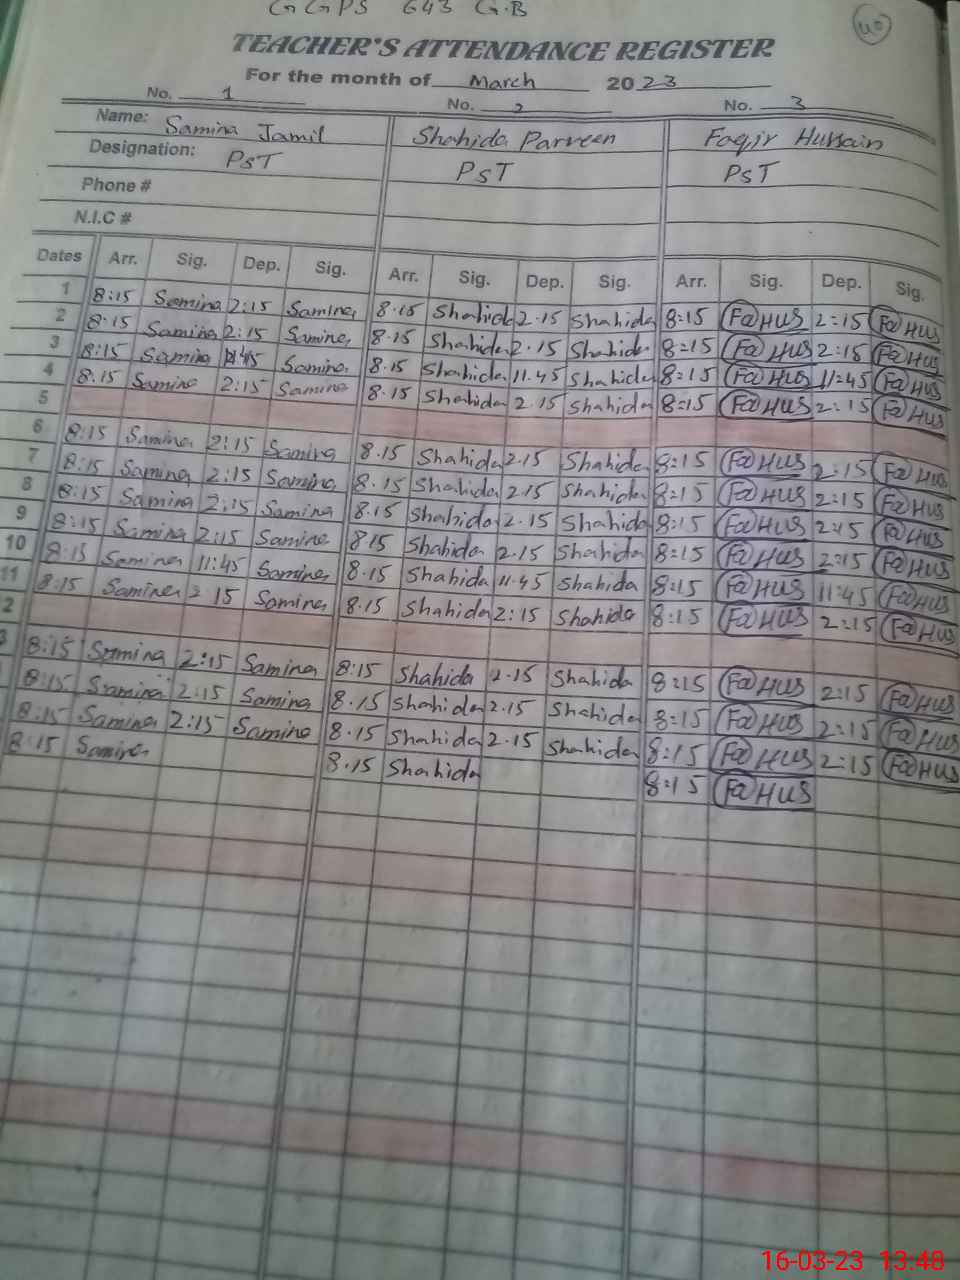 GGPS 643 G.B
40
TEACHER'S ATTENDANCE REGISTER
For the month of March 2023
No. 1 No. 2 No. 3
Name: Samina Jamil Shahida Parveen Faqir Hussain
Designation: PST PST PST
Phone #
N.I.C #
Dates Arr. Sig. Dep. Sig. Arr. Sig. Dep. Sig. Arr. Sig. Dep. Sig.
1 8:15 Samina 2:15 Samina 8.15 Shahida 2.15 Shahida 8:15 Fa HUS 2:15 Fa HUS
2 8:15 Samina 2:15 Samina 8.15 Shahida 2.15 Shahida 8:15 Fa HUS 2:15 Fa HUS
3 8:15 Samina 11:45 Samina 8.15 Shahida 11.45 Shahida 8:15 Fa HUS 11:45 Fa HUS
4 8.15 Samina 2:15 Samina 8.15 Shahida 2.15 Shahida 8:15 Fa HUS 2:15 Fa HUS
5
6 8:15 Samina 2:15 Samina 8.15 Shahida 2.15 Shahida 8:15 Fa HUS 2:15 Fa HUS
7 8:15 Samina 2:15 Samina 8.15 Shahida 2.15 Shahida 8:15 Fa HUS 2:15 Fa HUS
8 8:15 Samina 2:15 Samina 8.15 Shahida 2.15 Shahida 8:15 Fa HUS 2:15 Fa HUS
9 8:15 Samina 2:15 Samina 8.15 Shahida 2.15 Shahida 8:15 Fa HUS 2:15 Fa HUS
10 8:15 Samina 11:45 Samina 8.15 Shahida 11.45 Shahida 8:15 Fa HUS 11:45 Fa HUS
11 8:15 Samina 2 15 Samina 8.15 Shahida 2:15 Shahida 8:15 Fa HUS 2:15 Fa HUS
2
3 8:15 Samina 2:15 Samina 8:15 Shahida 2.15 Shahida 8:15 Fa HUS 2:15 Fa HUS
8:15 Samina 2:15 Samina 8.15 Shahida 2.15 Shahida 8:15 Fa HUS 2:15 Fa HUS
8:15 Samina 2:15 Samina 8.15 Shahida 2.15 Shahida 8:15 Fa HUS 2:15 Fa HUS
8:15 Samina 8.15 Shahida 8:15 Fa HUS
16-03-23 13:48